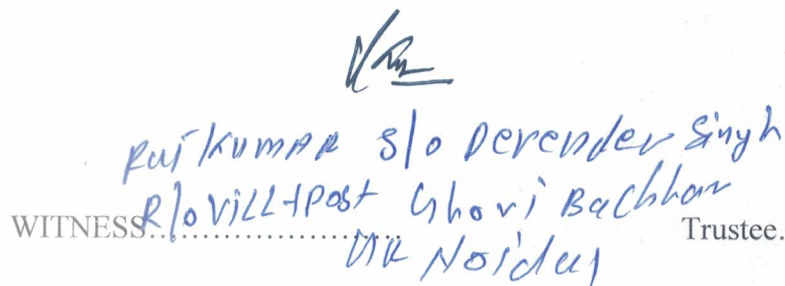 Raj KUMAR S/o Devender Singh
R/o VILL+Post Ghori Bachhar
WITNESS........................ Trustee.